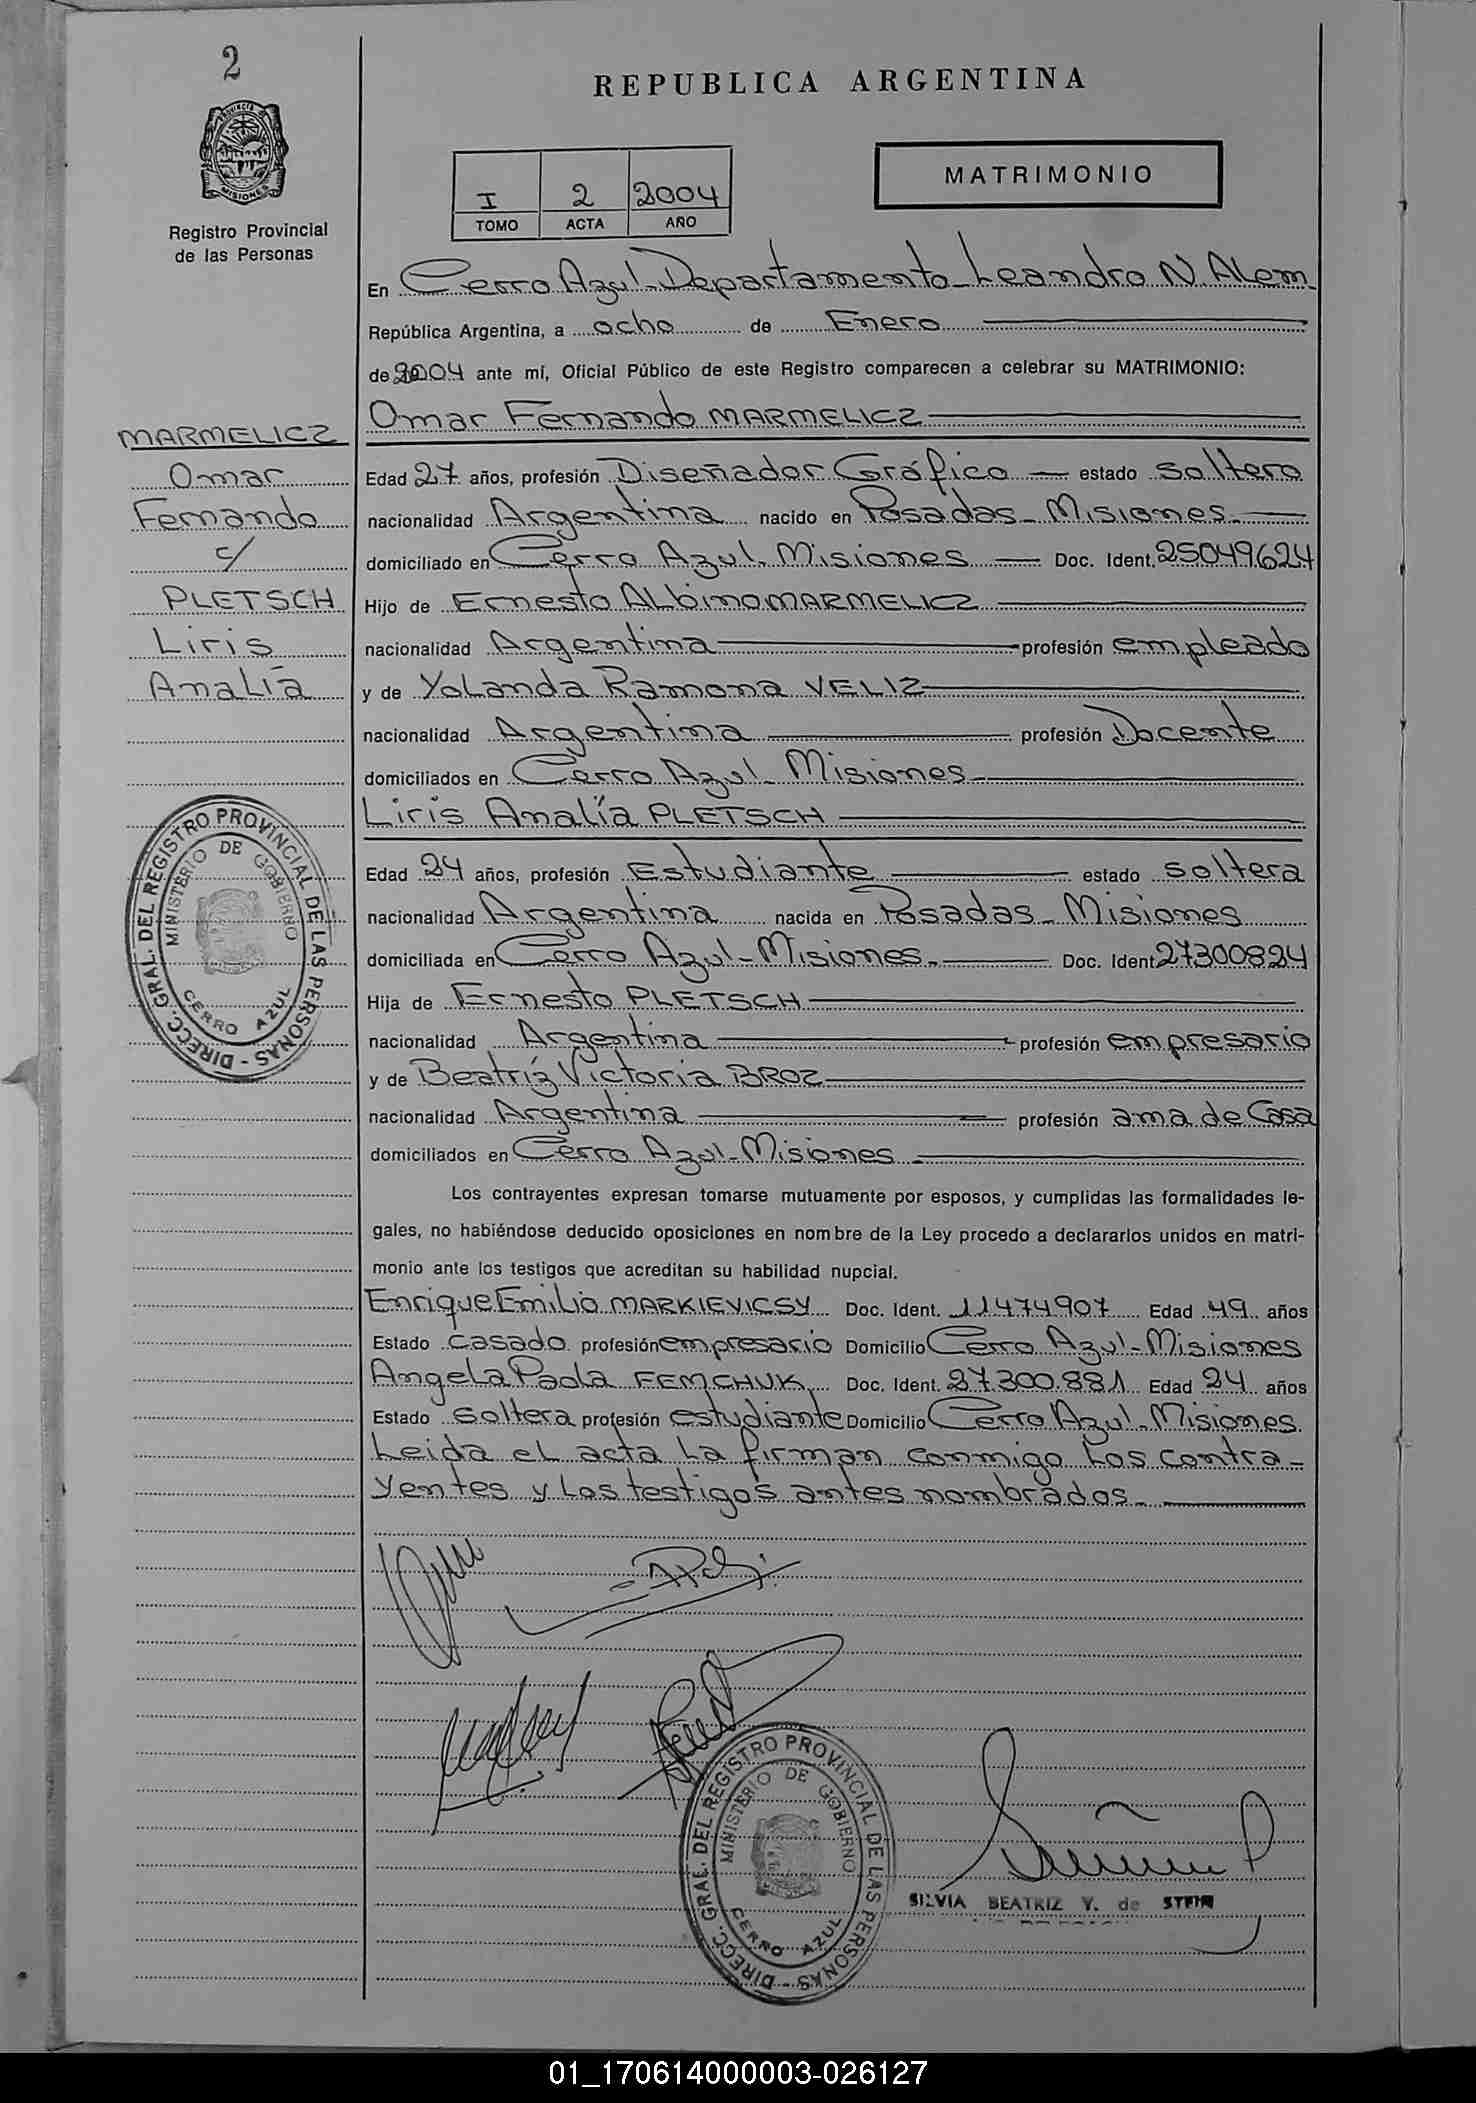 2
REPUBLICA ARGENTINA
PROVINCIA
MISIONES
Registro Provincial
de las Personas
I 2 2004
TOMO ACTA AÑO
MATRIMONIO
En Cerro Azul-Departamento-Leandro N. Alem
República Argentina, a ocho de Enero
de 2004 ante mí, Oficial Público de este Registro comparecen a celebrar su MATRIMONIO:
Omar Fernando MARMELICZ
MARMELICZ
Omar
Fernando
c/
PLETSCH
Liris
Analía
Edad 27 años, profesión Diseñador Gráfico — estado soltero
nacionalidad Argentina nacido en Posadas-Misiones
domiciliado en Cerro Azul-Misiones — Doc. Ident. 25049624
Hijo de Ernesto Albino MARMELICZ
nacionalidad Argentina profesión empleado
y de Yolanda Ramona VELIZ
nacionalidad Argentina profesión Docente
domiciliados en Cerro Azul-Misiones
Liris Analía PLETSCH
Edad 24 años, profesión Estudiante estado soltera
nacionalidad Argentina nacida en Posadas-Misiones
domiciliada en Cerro Azul-Misiones. Doc. Ident 27300824
Hija de Ernesto PLETSCH
nacionalidad Argentina profesión empresario
y de Beatríz Victoria BROZ
nacionalidad Argentina profesión ama de Casa
domiciliados en Cerro Azul-Misiones
DIRECC. GRAL. DEL REGISTRO PROVINCIAL DE LAS PERSONAS -
MINISTERIO DE GOBIERNO
CERRO AZUL
Los contrayentes expresan tomarse mutuamente por esposos, y cumplidas las formalidades le-
gales, no habiéndose deducido oposiciones en nombre de la Ley procedo a declararlos unidos en matri-
monio ante los testigos que acreditan su habilidad nupcial.
Enrique Emilio MARKIEVICSY Doc. Ident. 11474907 Edad 49 años
Estado casado profesión empresario Domicilio Cerro Azul-Misiones
Angela Paola FEMCHUK Doc. Ident. 27.300.881 Edad 24 años
Estado soltera profesión estudiante Domicilio Cerro Azul-Misiones.
Leida el acta la firman conmigo los contra-
yentes y los testigos antes nombrados.
DIRECC. GRAL. DEL REGISTRO PROVINCIAL DE LAS PERSONAS -
MINISTERIO DE GOBIERNO
CERRO AZUL
SILVIA BEATRIZ Y. de STEIN
01_170614000003-026127